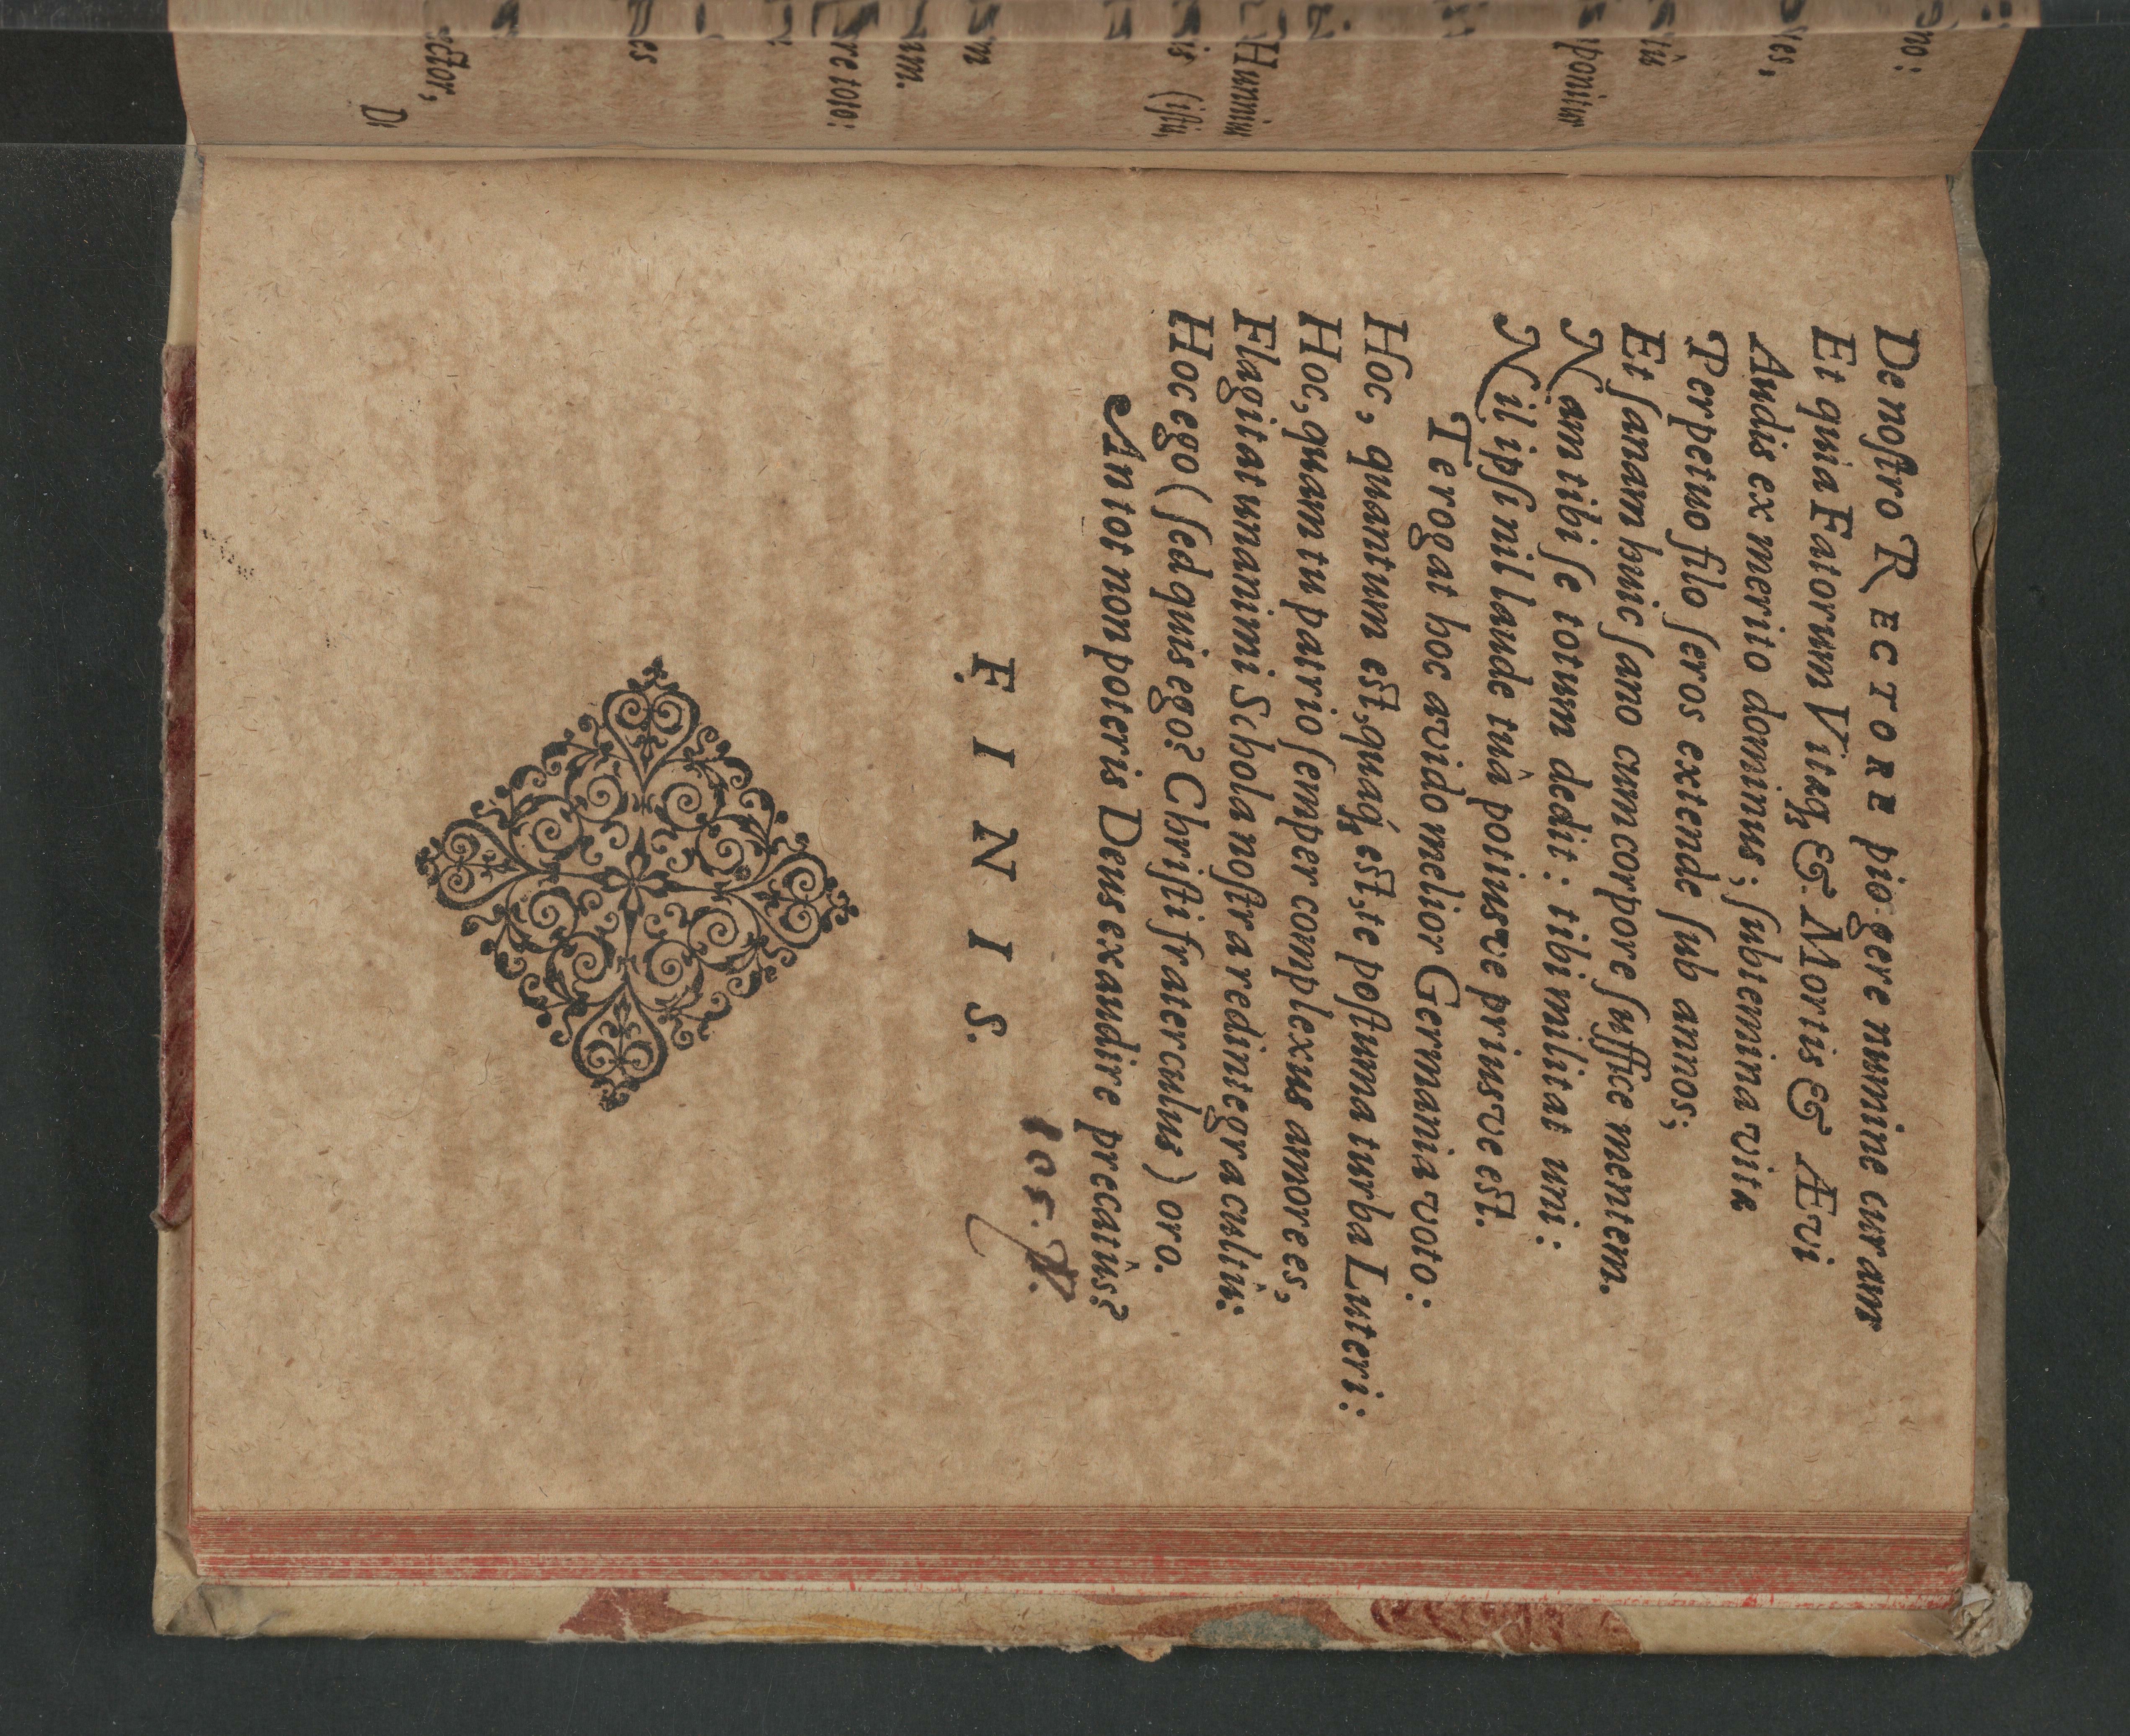 no:
ves,
tû
sponitur
Hunniu
is (istû,
m
um.
re toto:
es
ctor,
De
De noſtro RECTORE pio gere numine curam
Et quia Fatorum Vitæq; & Mortis & Ævi
Audis ex merito dominus; ſubtemina vitæ
Perpetuo filo ſeros extende ſub annos;
Et ſanam huic ſano cum corpore ſuffice mentem.
Nam tibi ſe totum dedit: tibi militat uni:
Nil ipſi nil laude tuâ potiusve priusve eſt.
Te rogat hoc avido melior Germania voto:
Hoc, quantum eſt, quáq; eſt, te poſtuma turba Luteri:
Hoc, quam tu patrio ſemper complexus amore es,
Flagitat unanimi Schola noſtra redintegra cultû:
Hoc ego (ſed quis ego? Chriſti fraterculus) oro.
An tot non poteris Deus exaudire precatûs?
105.
F I N I S.